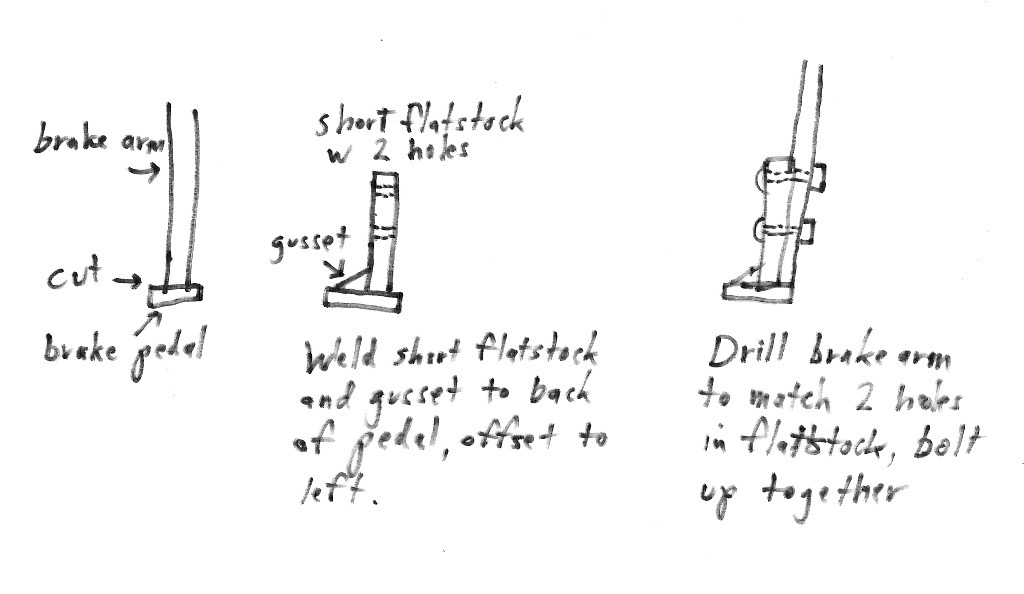 brake arm
cut
brake pedal
short flatstock
w 2 holes
gusset
Weld short flatstock
and gusset to back
of pedal, offset to
left.
Drill brake arm
to match 2 holes
in flatstock, bolt
up together